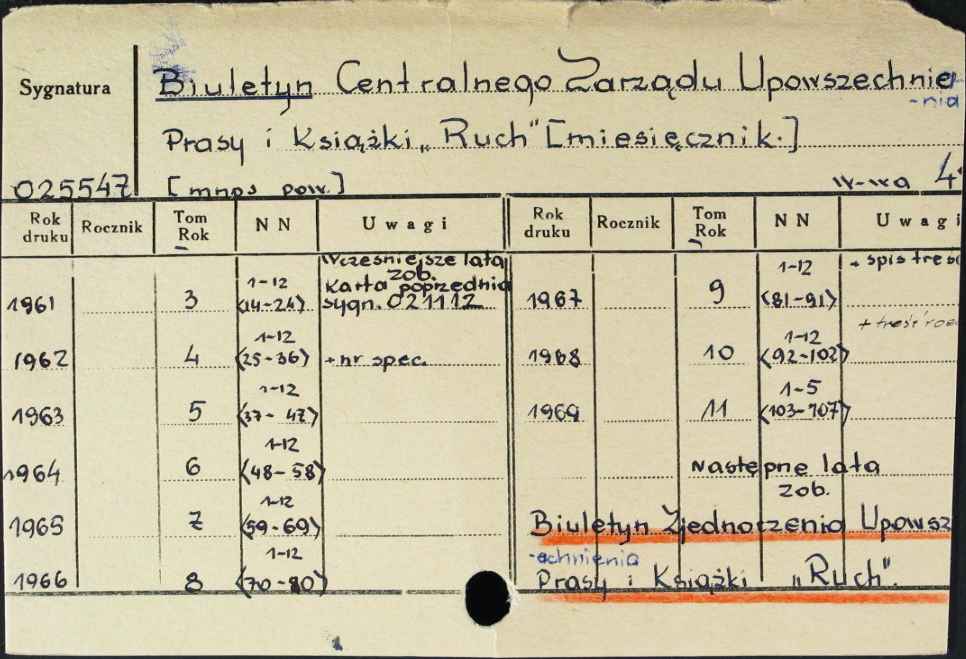 Sygnatura
Biuletyn Centralnego Zarządu Upowszechnie
-nia
Prasy i Książki „Ruch" [miesięcznik.]
025547 [mnps pow.] W-wa 4°
Rok druku Rocznik Tom Rok NN Uwagi Rok druku Rocznik Tom Rok NN Uwagi
1961 3 1-12 (14-24) Wcześniejsze lata zob. Karta poprzednia sygn. 021112 1967 9 1-12 (81-91) + spis treśc
1962 4 1-12 (25-36) + nr spec. 1968 10 1-12 (92-102) + treść roc
1963 5 1-12 (37-47) 1969 11 1-5 (103-107)
1964 6 1-12 (48-58) Następne lata zob.
1965 7 1-12 (59-69) Biuletyn Zjednoczenia Upowsz
-echnienia
1966 8 1-12 (70-80) Prasy i Książki „Ruch".
1